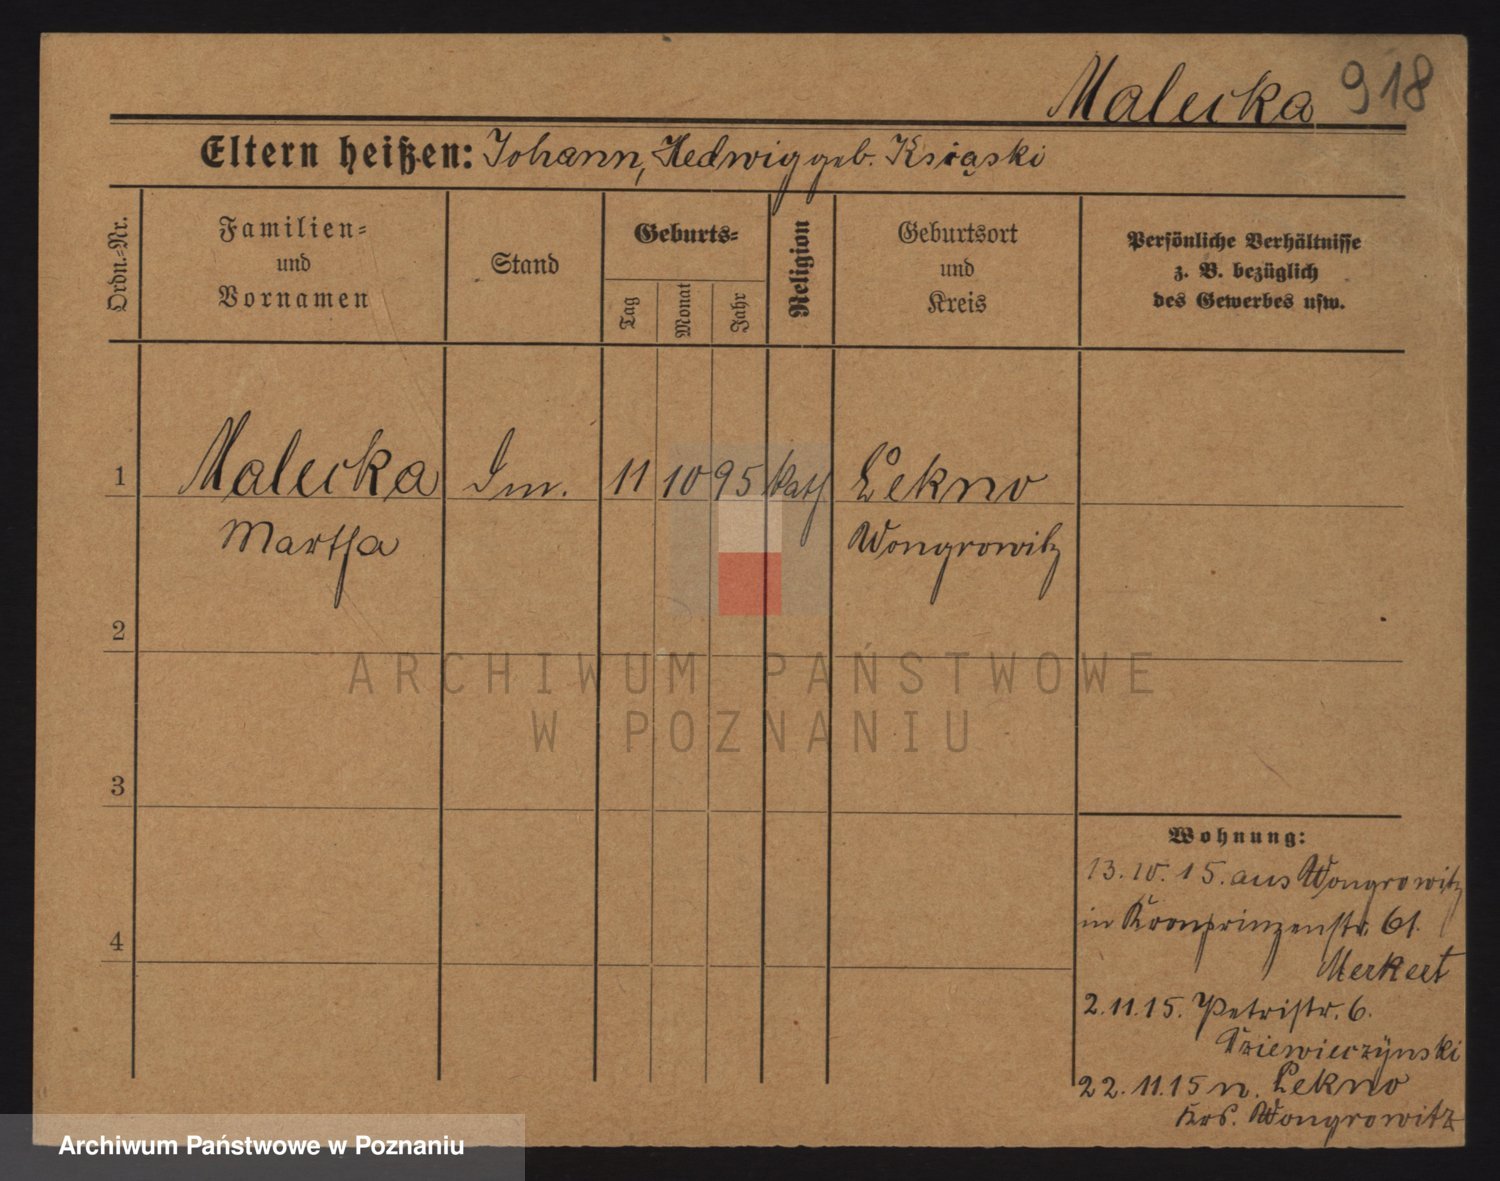 Malecka 918
Eltern heißen: Johann, Hedwig geb. Ksiąski
Ordn.-Nr.
Familien-
und
Vornamen
Stand
Geburts-
Tag
Monat
Jahr
Religion
Geburtsort
und
Kreis
Persönliche Verhältnisse
z. B. bezüglich
des Gewerbes usw.
1 Malecka 11 10 95 kath Lekno
Martha Wongrowitz
2
3
4
Wohnung:
13.10.15. aus Wongrowitz
in Kronprinzenstr. 61.
Merkert
2.11.15. Petristr. 6.
22.11.15 n. Lekno
Krs. Wongrowitz
ARCHIWUM PAŃSTWOWE
W POZNANIU
Archiwum Państwowe w Poznaniu